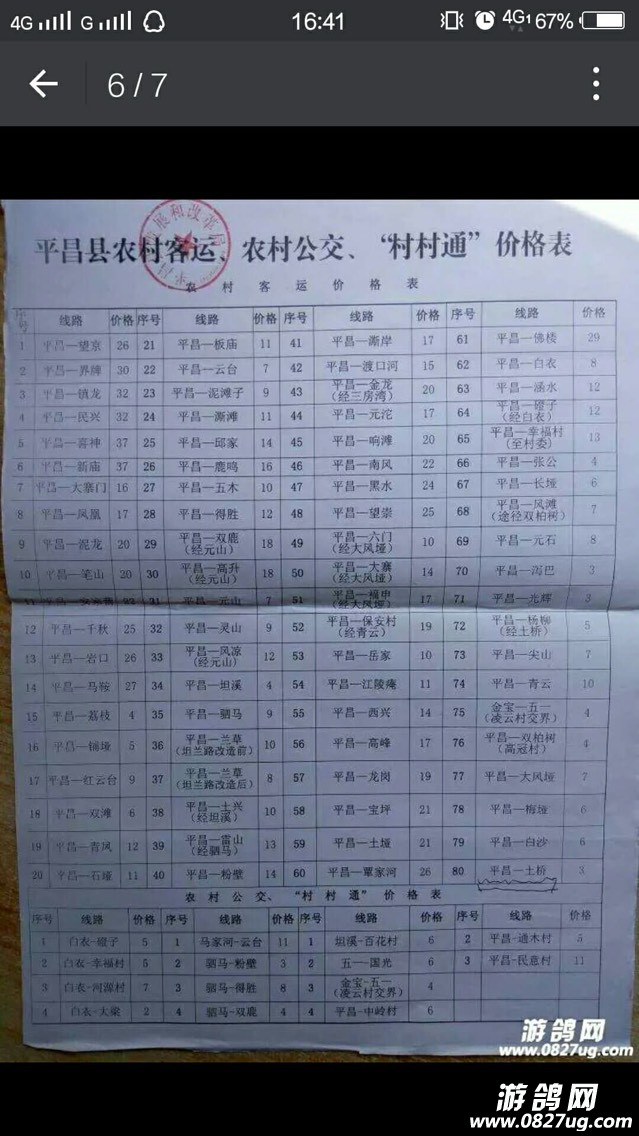 4G G 16:41 4G1 67%
6 / 7
发展和改革局
平昌县农村客运、农村公交、“村村通”价格表
农 村 客 运 价 格 表
序号 线路 价格 序号 线路 价格 序号 线路 价格 序号 线路 价格
1 平昌—望京 26 21 平昌—板庙 11 41 平昌—澌岸 17 61 平昌—佛楼 29
2 平昌—界牌 30 22 平昌—云台 7 42 平昌—渡口河 15 62 平昌—白衣 8
3 平昌—镇龙 32 23 平昌—泥滩子 9 43 平昌—金龙(经三房湾) 20 63 平昌—涵水 12
4 平昌—民兴 32 24 平昌—澌滩 11 44 平昌—元沱 17 64 平昌—磴子(经白衣) 12
5 平昌—喜神 37 25 平昌—邱家 14 45 平昌—响滩 20 65 平昌—幸福村(至村委) 13
6 平昌—新庙 37 26 平昌—鹿鸣 16 46 平昌—南风 22 66 平昌—张公 4
7 平昌—大寨门 16 27 平昌—五木 10 47 平昌—黑水 24 67 平昌—长垭 6
8 平昌—凤凰 17 28 平昌—得胜 12 48 平昌—望崇 25 68 平昌—风滩(途径双柏树) 7
9 平昌—泥龙 20 29 平昌—双鹿(经元山) 18 49 平昌—六门(经大风垭) 10 69 平昌—元石 8
10 平昌—笔山 20 30 平昌—高升(经元山) 18 50 平昌—大寨(经大风垭) 14 70 平昌—泻巴 3
11 平昌— 31 平昌—元山 7 51 平昌—福申(经大风垭) 17 71 平昌—光辉 3
12 平昌—千秋 25 32 平昌—灵山 9 52 平昌—保安村(经青云) 19 72 平昌—杨柳(经土桥) 5
13 平昌—岩口 26 33 平昌—风凉(经元山) 12 53 平昌—岳家 10 73 平昌—尖山 7
14 平昌—马鞍 27 34 平昌—坦溪 4 54 平昌—江陵庵 11 74 平昌—青云 10
15 平昌—荔枝 4 35 平昌—驷马 9 55 平昌—西兴 14 75 金宝—五一(凌云村交界) 4
16 平昌—铺垭 5 36 平昌—兰草(坦兰路改造前) 10 56 平昌—高峰 17 76 平昌—双柏树(高冠村) 4
17 平昌—红云台 9 37 平昌—兰草(坦兰路改造后) 8 57 平昌—龙岗 19 77 平昌—大风垭 7
18 平昌—双滩 6 38 平昌—土兴(经坦溪) 10 58 平昌—宝坪 21 78 平昌—梅垭 6
19 平昌—青凤 12 39 平昌—雷山(经驷马) 13 59 平昌—土垭 21 79 平昌—白沙 6
20 平昌—石垭 11 40 平昌—粉壁 14 60 平昌—覃家河 26 80 平昌—土桥 3
农 村 公 交、 “村 村 通” 价 格 表
序号 线路 价格 序号 线路 价格 序号 线路 价格 序号 线路 价格
1 白衣-磴子 5 1 马家河-云台 11 1 坦溪-百花村 6 2 平昌-通木村 5
2 白衣-幸福村 5 2 驷马-粉壁 3 2 五一-国光 6 3 平昌-民意村 11
3 白衣-河源村 7 3 驷马-得胜 8 3 金宝-五一(凌云村交界) 4
4 白衣-大梁 2 4 驷马-双鹿 4 4 平昌-中岭村 6
游鸽网
www.0827ug.com
游鸽网
www.0827ug.com